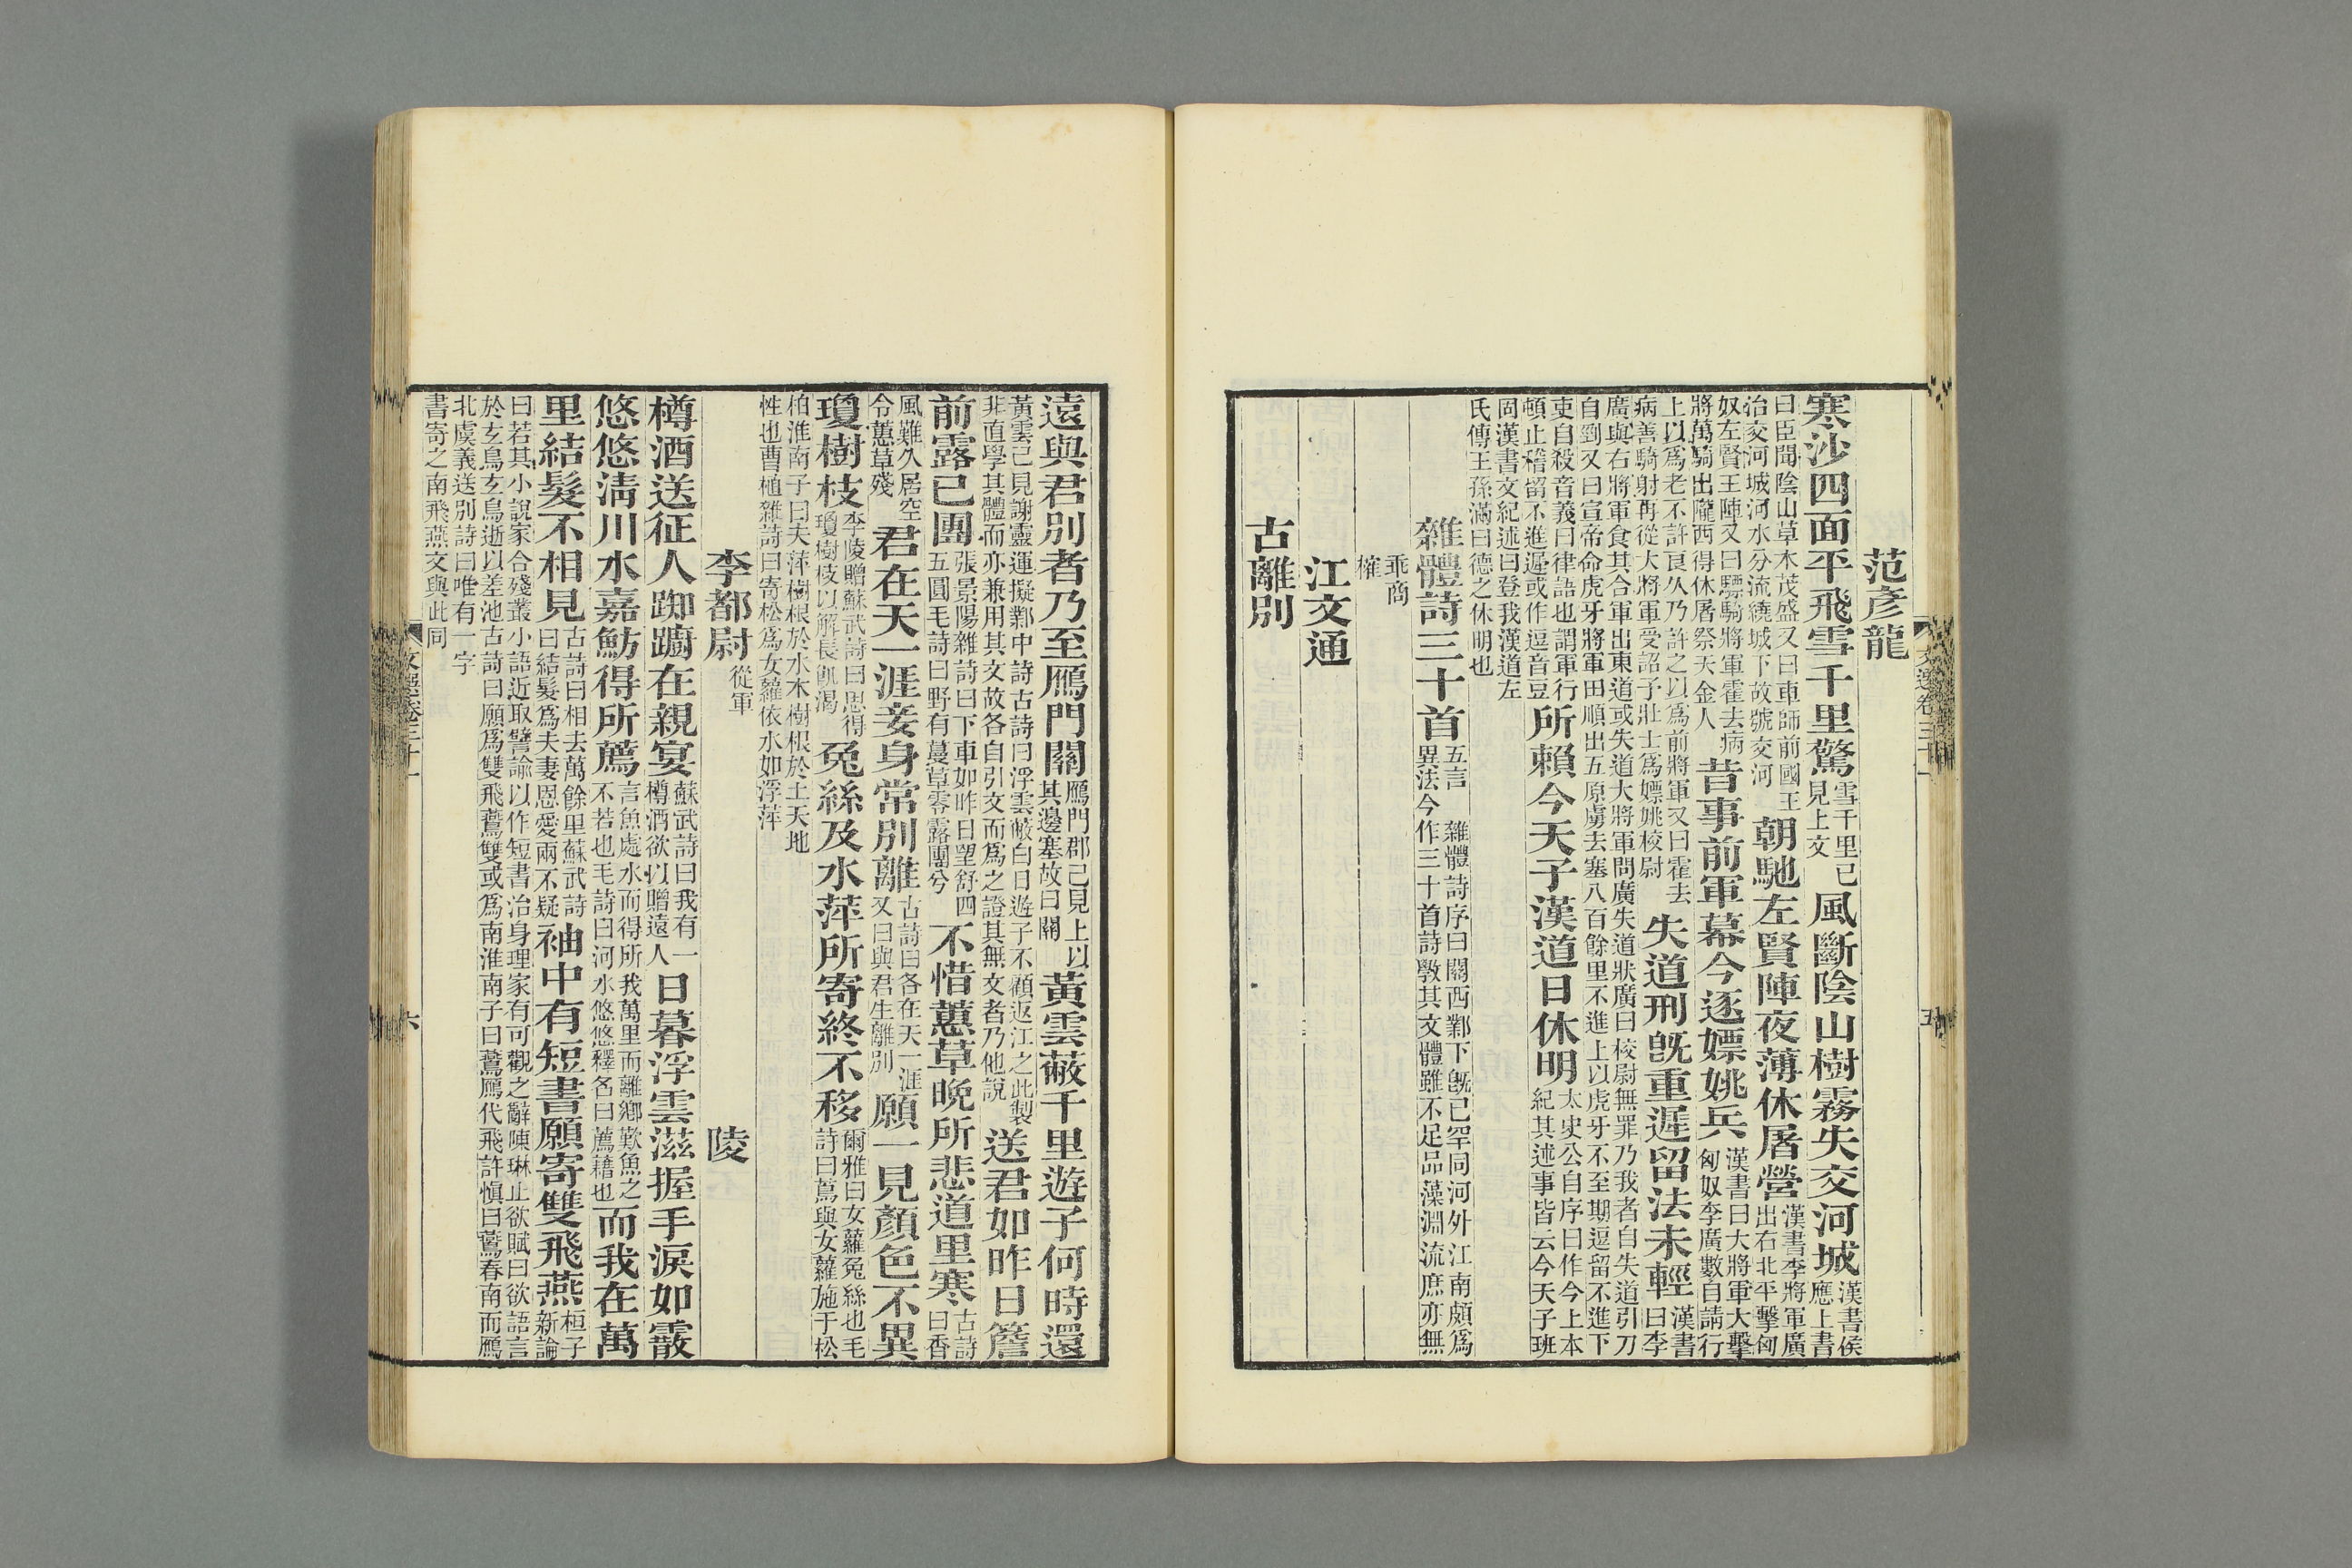 范彥龍
寒沙四面平飛雪千里驚雪千里已見上文風斷陰山樹霧失交河城漢書侯應上書
曰臣聞陰山草木茂盛又曰車師前國王治交河城河水分流繞城下故號交河朝馳左賢陣夜薄休屠營漢書李將軍廣出右北平擊匈
奴左賢王陣又曰驃騎將軍霍去病將萬騎出隴西得休屠祭天金人昔事前軍幕今逐嫖姚兵漢書曰大將軍大擊匈奴李廣數自請行
上以爲老不許良久乃許之以爲前將軍又曰霍去病善騎射再從大將軍受詔予壯士爲嫖姚校尉失道刑旣重遲留法未輕漢書曰李
廣與右將軍食其合軍出東道或失道大將軍問廣失道狀廣曰校尉無罪乃我者自失道引刀自剄又曰宣帝命虎牙將軍田順出五原虜去塞八百餘里不進上以虎牙不至期逗留不進下
吏自殺音義曰律語也謂軍行頓止稽留不進遲或作逗音豆所賴今天子漢道日休明太史公自序曰作今上本紀其述事皆云今天子班
固漢書文紀述曰登我漢道左氏傳王孫滿曰德之休明也
雜體詩三十首五言 雜體詩序曰關西鄴下旣已罕同河外江南頗爲異法今作三十首詩斅其文體雖不足品藻淵流庶亦無
乖商榷
江文通
古離別
文選卷三十一
五
遠與君別者乃至鴈門關鴈門郡已見上以其邊塞故曰關黃雲蔽千里遊子何時還
黃雲已見謝靈運擬鄴中詩古詩曰浮雲蔽白日遊子不顧返江之此製非直學其體而亦兼用其文故各自引文而爲之證其無文者乃他說送君如昨日簷
前露已團張景陽雜詩曰下車如昨日望舒四五圓毛詩曰野有蔓草零露團兮不惜蕙草晚所悲道里寒古詩曰香
風難久居空令蕙草殘君在天一涯妾身常別離古詩曰各在天一涯又曰與君生離別願一見顏色不異
瓊樹枝李陵贈蘇武詩曰思得瓊樹枝以解長飢渴兔絲及水萍所寄終不移爾雅曰女蘿兔絲也毛詩曰蔦與女蘿施于松
柏淮南子曰夫萍樹根於水木樹根於土天地性也曹植雜詩曰寄松爲女蘿依水如浮萍
李都尉從軍 陵
樽酒送征人踟躕在親宴蘇武詩曰我有一樽酒欲以贈遠人日暮浮雲滋握手淚如霰
悠悠淸川水嘉魴得所薦言魚處水而得所我萬里而離鄕歎魚之不若也毛詩曰河水悠悠釋名曰薦藉也而我在萬
里結髮不相見古詩曰相去萬餘里蘇武詩曰結髮爲夫妻恩愛兩不疑袖中有短書願寄雙飛燕桓子新論
曰若其小說家合殘叢小語近取譬諭以作短書治身理家有可觀之辭陳琳止欲賦曰欲語言於玄鳥玄鳥逝以差池古詩曰願爲雙飛鷰雙或爲南淮南子曰鷰鴈代飛許愼曰鷰春南而鴈
北虞義送別詩曰唯有一字書寄之南飛燕文與此同
文選卷三十一
六